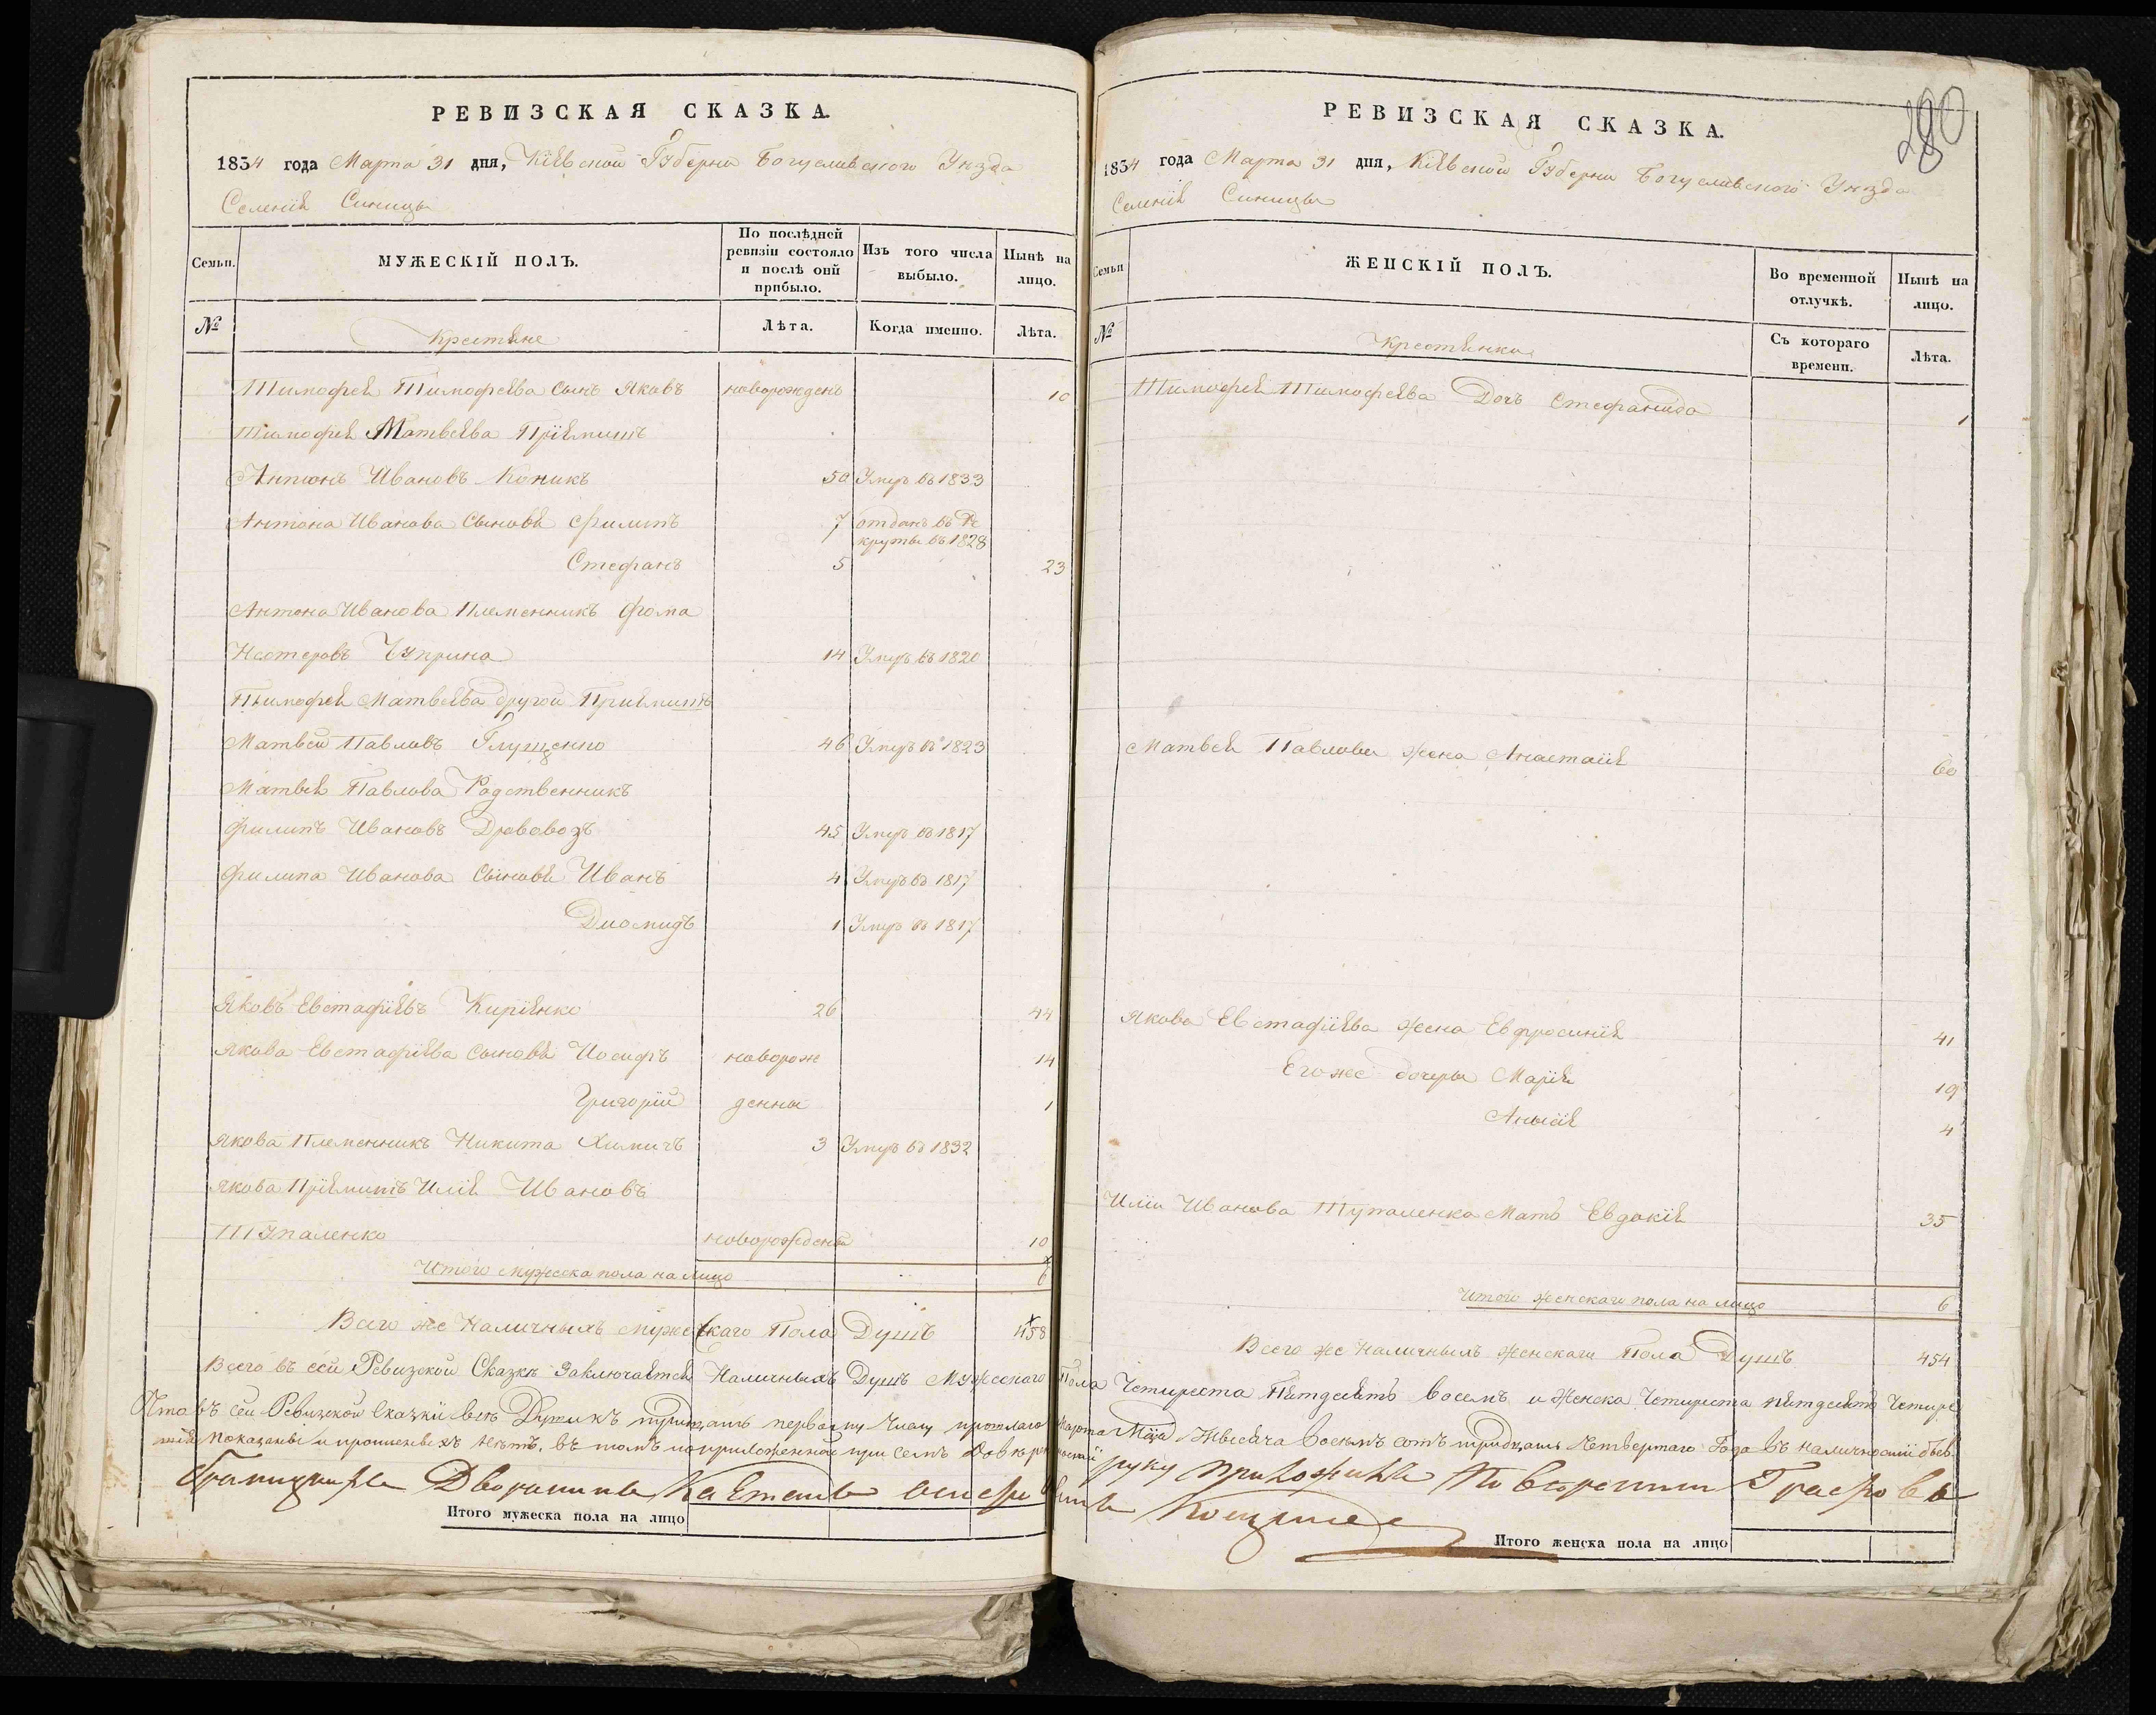 РЕВИЗСКАЯ СКАЗКА.
1834 года Марта 31 дня, Кіевской Губерни Богуславского Уезда
Селенія Синицы
Семьи.
МУЖЕСКІЙ ПОЛЪ.
По послѣдней ревизіи состояло и послѣ оной прибыло.
Изъ того числа выбыло.
Нынѣ на лицо.
№
Крестяне
Лѣта.
Когда именно.
Лѣта.
Тимофея Тимофеева Сынъ Яковъ новорожденъ 10
Тимофея Матвеева Пріемишъ
Антонъ Ивановъ Коникъ 50 Умеръ въ 1833
Антона Иванова Сыновя Филипъ 7 отданъ въ Ре
круты въ 1828
Стефанъ 5 23
Антона Иванова Племенникъ Фома
Нестеровъ Чуприна 14 Умеръ въ 1820
Тимофея Матвеева другой Приемишъ
Матвей Павловъ Глущенко 46 Умеръ въ 1823
Матвея Павлова Родственникъ
Филипъ Ивановъ Дрововозъ 45 Умеръ въ 1817
Филипа Иванова Сыновя Иванъ 4 Умеръ въ 1817
Диомидъ 1 Умеръ въ 1817
Яковъ Евстафіевъ Киріенко 26 44
Якова Евстафіева Сыновя Иосифъ новорож 14
Григорій денны 1
Якова Племенникъ Никита Химичъ 3 Умеръ въ 1832
Якова Пріемишъ Илія Ивановъ
Тупаленко новорожденъ 10
Итого мужеска пола на лицо 6
Всего же Наличныхъ мужескаго Пола Душъ 458
Всего въ сей Ревизской Сказке Заключается Наличныхъ Душъ Мужескаго
Что въ сей Ревизской Сказки все Душы къ тридцать первому Числу прошлаго
показаны и прописныхъ нетъ, въ томъ по приложенной при семъ
Дворянинъ
Итого мужеска пола на лицо
РЕВИЗСКАЯ СКАЗКА.
280
1834 года Марта 31 дня, Кіевской Губерни Богуславского Уезда
Селенія Синицы
Семьи
ЖЕНСКІЙ ПОЛЪ.
Во временной отлучкѣ.
Нынѣ на лицо.
№
Крестянки
Съ котораго времени.
Лѣта.
Тимофея Тимофеева Дочь Стефанида 1
Матвея Павлова жена Анастасія 60
Якова Евстафіева жена Евфросинія 41
Егоже дочеры Марія 19
Анисія 4
Иліи Иванова Тупаленка Мать Евдокія 35
Итого женскаго пола на лицо 6
Всего же Наличныхъ женскаго Пола Душъ 454
Пола Четыреста Пятдесятъ восемъ и женска Четыреста пятдесятъ Четыре
Марта Мца Тысяча восемъ сотъ тридцать Четвертаго Года въ наличности
руку приложилъ
Итого женска пола на лицо